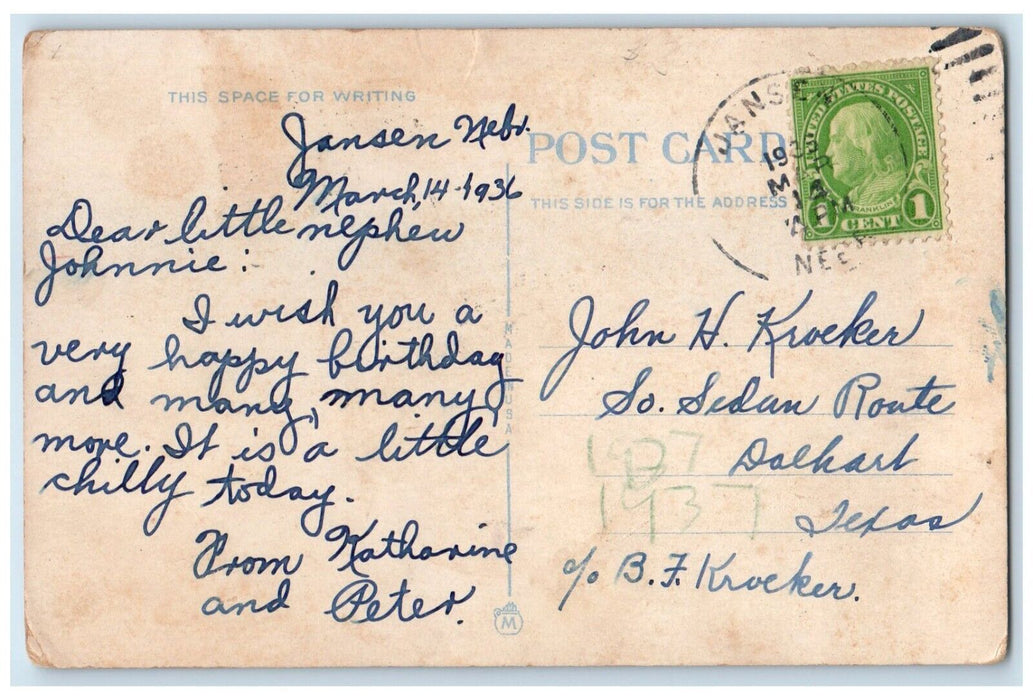 THIS SPACE FOR WRITING
Jansen Nebr.
March, 14-1936
Dear little nephew
Johnnie:
I wish you a
very happy birthday
and many, many,
more. It is a little
chilly today.
From Katharine
and Peter.
POST CARD
THIS SIDE IS FOR THE ADDRESS
MADE IN USA
M
JANSEN
MAR
14
PM
UNITED STATES POSTAGE
FRANKLIN
1 CENT 1
John H. Kroeker
So. Sedan Route
Dalhart
Texas
c/o B. F. Kroeker.
1937
1937